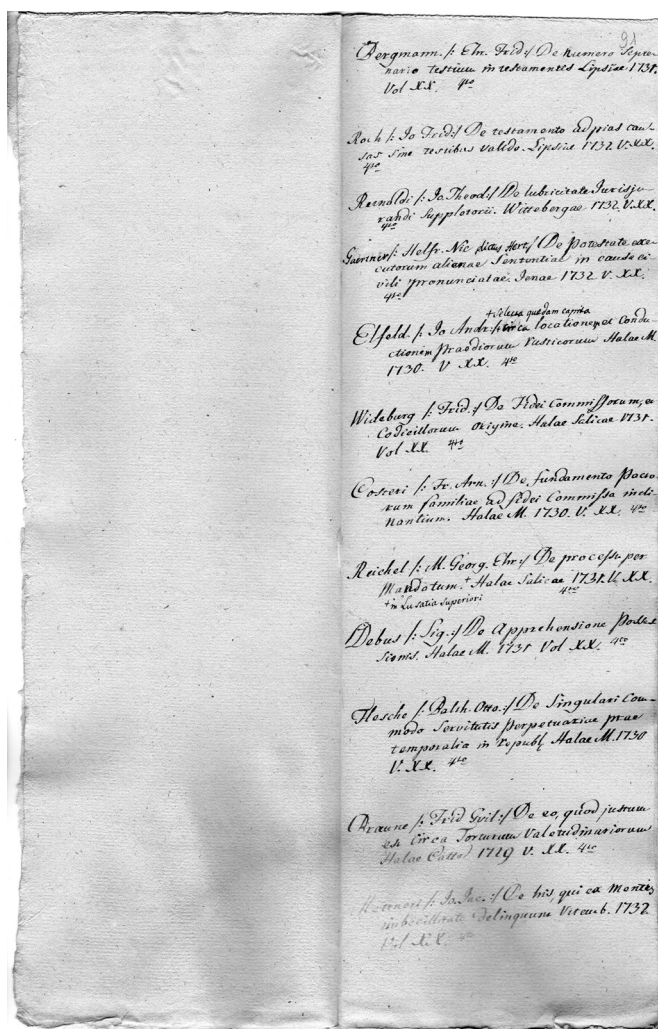 91
Bergmann /: Chr. Frid:/ De numero Septe-
nario testium in testamentis Lipsiae 1731.
Vol XX. 4to
Roch /: Io Frid:/ De testamento ad pias cau-
sas sine testibus valido. Lipsiae 1732 V.XX.
4to
Reinoldi /: Io. Theod:/ De lubricitate Jurisju-
randi Suppletorii. Wittebergae 1732. V.XX.
4to
Gaertner /: Helfr. Nic dictus Hert:/ De potestate exe-
cutorum alienae Sententiae in causa ci-
vili pronunciatae. Ienae 1732 V. XX.
4to
+ Selecta quedam capita
Elfeld /: Io Andr:/ circa locationem et Condu-
ctionem Praediorum rusticorum Halae M
1730. V XX. 4to
Wideburg /: Frid:/ De Fidei Commissorum, et
Codicillorum Origine. Halae Salicae 1731.
Vol XX. 4to
Costeri /: Fr. Arn:/ De fundamento Pacto-
rum familiae ad fidei Commissa incli-
nantium. Halae M. 1730. V. XX. 4to
Reichel /: M. Georg. Ehr:/ De processu per
Mandatum. + Halae Salicae 1731. V. XX.
+ in Lusatia Superiori 4to
Debus /: Sig:/ De Apprehensione Posses
sionis. Halae M. 1731 Vol XX. 4to
Flesche /: Balth. Otto:/ De Singulari Com-
modo Servitutis perpetuariae prae
temporalia in republ Halae M. 1730
V. XX. 4to
Braune /: Frid Guil:/ De eo, quod justum
est Circa Torturam Valetudinariorum
Halae 1729 V. XX. 4to
/: Io. Jac:/ De his, qui ex Mentis
imbecillitate delinquunt Vitemb. 1732
Vol XX. 4to